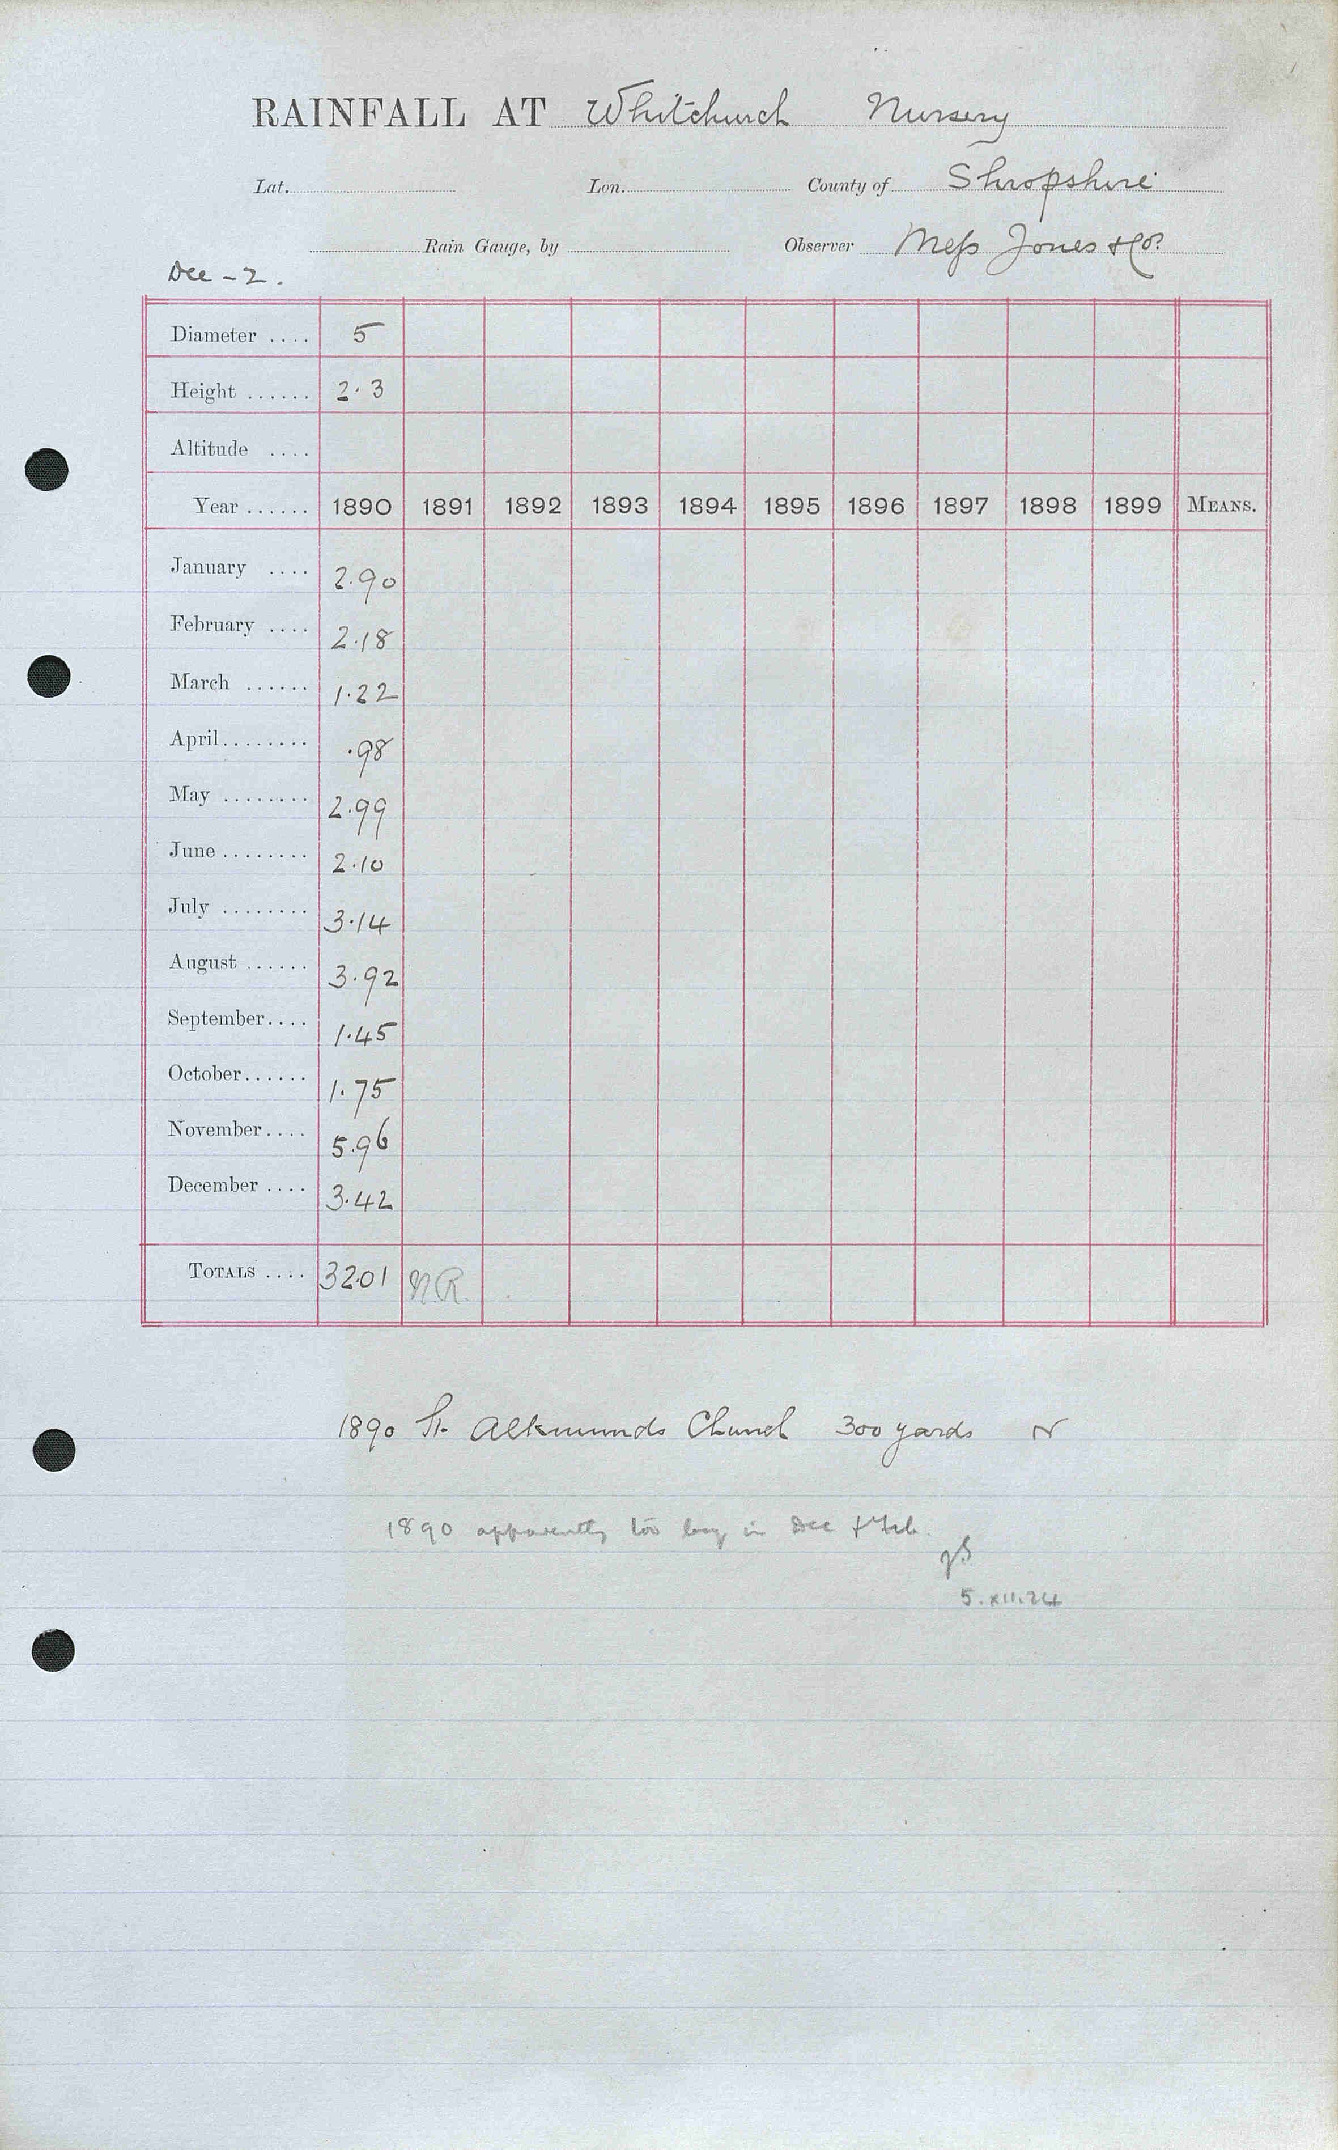 RAINFALL AT Whitchurch Nursery
Lat. Lon. County of Shropshire
Rain Gauge, by Observer Mess Jones & Co.
Dec - 2.
Diameter .... 5
Height ...... 2.3
Altitude ....
Year ...... 1890 1891 1892 1893 1894 1895 1896 1897 1898 1899 MEANS.
January .... 2.90
February .... 2.18
March ...... 1.22
April ........ .98
May ........ 2.99
June ........ 2.10
July ........ 3.14
August ...... 3.92
September .... 1.45
October ...... 1.75
November .... 5.96
December .... 3.42
TOTALS .... 32.01 N.R.
1890 St. Alkmunds Church 300 yards N
1890 apparently too big in Dec & Feb.
5.XII.24